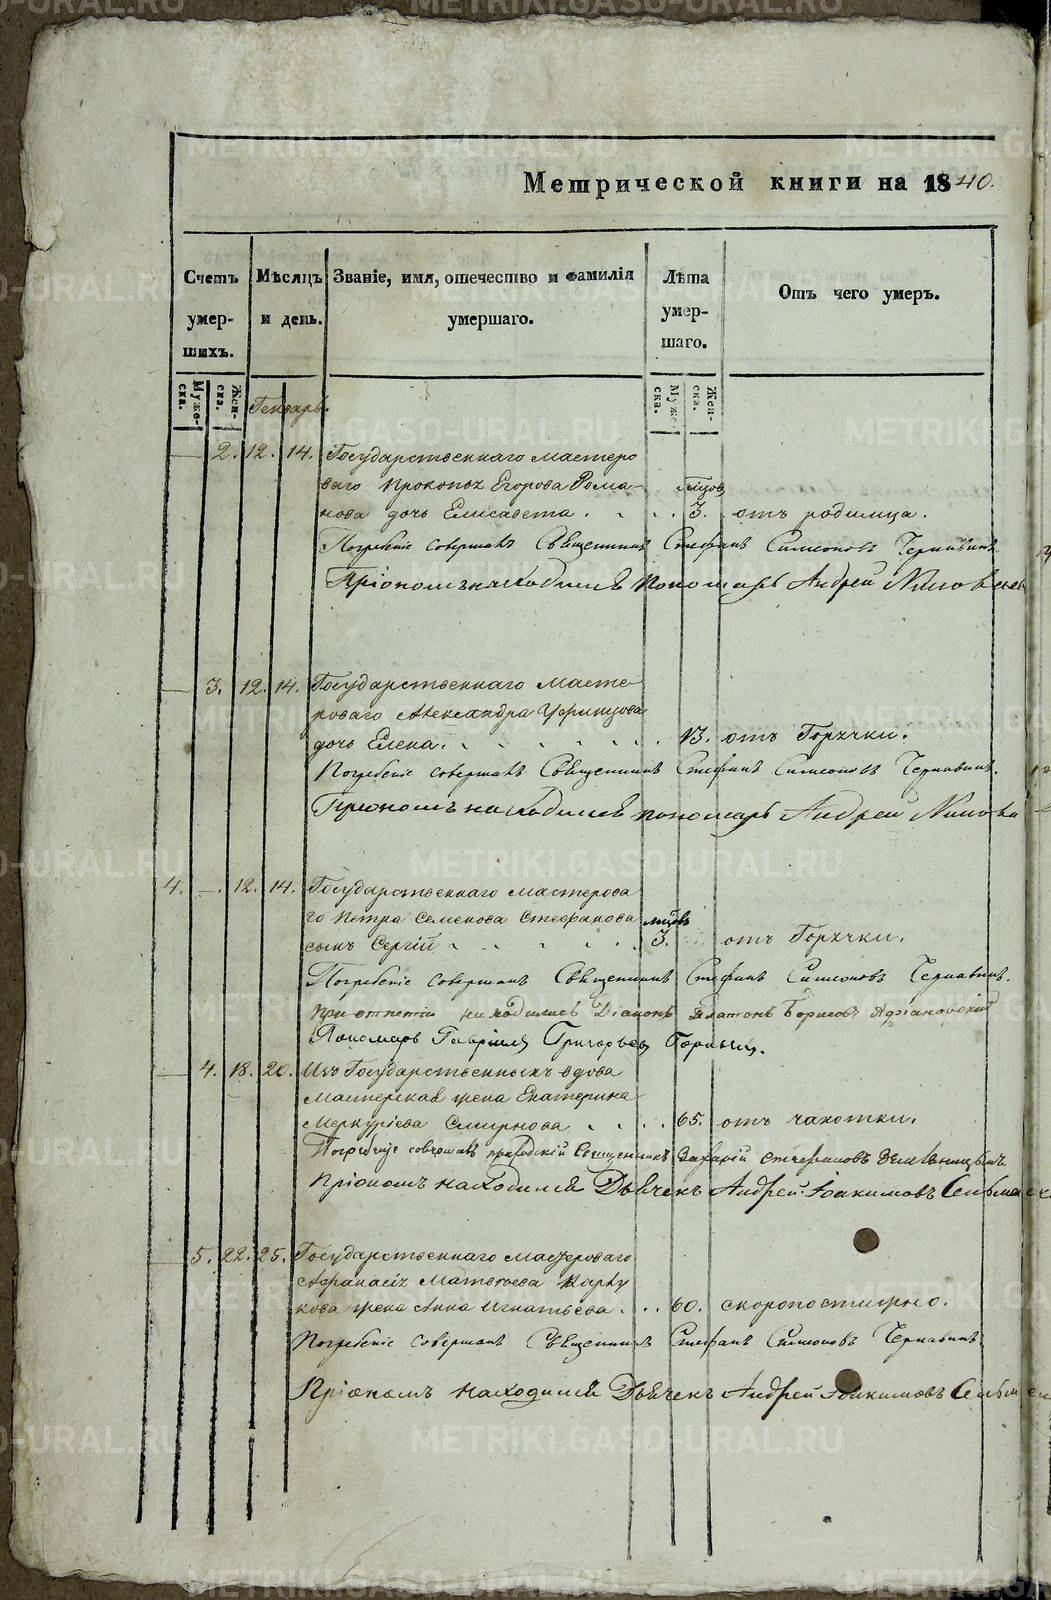 Метрической книги на 1840.
Счетъ умершихъ.
Мѣсяцъ и день.
Званіе, имя, отечество и фамилія умершаго.
Лѣта умершаго.
Отъ чего умеръ.
Мужеска.
Женска.
Мужеска.
Женска.
Генварь.
— 2. 12. 14. Государственнаго мастеро
ваго Прокопья Егорова Рома- мѣсяцов
нова дочь Елисавета . . . . 3. отъ родимца.
Погребеніе совершалъ Священникъ Стефанъ Симеоновъ Чернавинъ
При ономъ находился пономарь Андрей
— 3. 12. 14. Государственнаго масте-
роваго Александра Уфинцова
дочь Елена . . . . . . 13. отъ Горячки.
Погребеніе совершалъ Священникъ Стефанъ Симеоновъ Чернавинъ.
При ономъ находился пономарь Андрей
4. —. 12. 14. Государственнаго мастерова
го Петра Семенова Стефанова мѣсяцовъ
сынъ Сергій . . . . . . 3. отъ Горячки.
Погребеніе совершалъ Священникъ Стефанъ Симеоновъ Чернавинъ.
При отпетіи находились Діаконъ Платонъ Борисовъ Адріановскій
Пономарь Гавріилъ Григорьевъ
— 4. 18. 20. Изъ Государственныхъ вдова
мастерская жена Екатерина
Меркуріева Смирнова . . . . 65. отъ чахотки.
Погребеніе совершалъ приходскій Священникъ Захарій Стефановъ
При ономъ находился Дьячекъ Андрей Іоакимовъ
— 5. 22. 25. Государственнаго мастероваго
Афанасія Матвѣева
кова жена Анна Игнатьева . . . 60. скоропостижно.
Погребеніе совершалъ Священникъ Стефанъ Симеоновъ Чернавинъ.
При ономъ находился Дьячекъ Андрей Іоакимовъ
METRIKI.GASO-URAL.RU